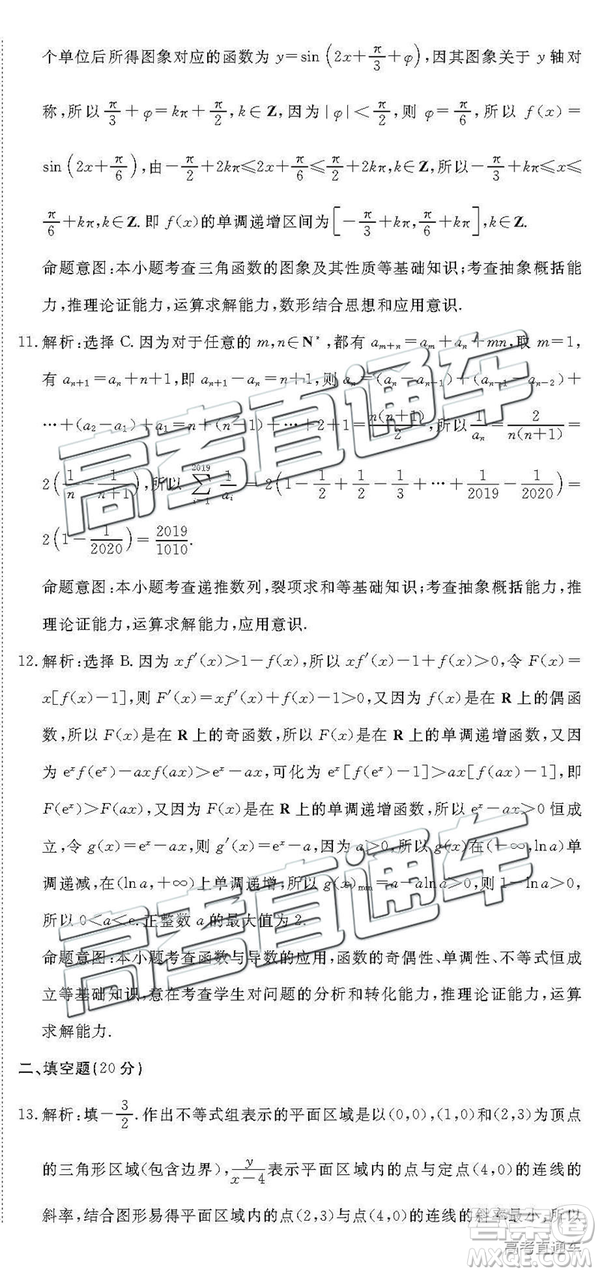 个单位后所得图象对应的函数为 y=sin(2x+π/3+φ),因其图象关于 y 轴对
称,所以 π/3+φ=kπ+π/2,k∈Z,因为|φ|<π/2,则 φ=π/6,所以 f(x)=
sin(2x+π/6),由-π/2+2kπ≤2x+π/6≤π/2+2kπ,k∈Z,所以-π/3+kπ≤x≤
π/6+kπ,k∈Z.即 f(x)的单调递增区间为[-π/3+kπ,π/6+kπ],k∈Z.
命题意图:本小题考查三角函数的图象及其性质等基础知识;考查抽象概括能
力,推理论证能力,运算求解能力,数形结合思想和应用意识.
11.解析:选择 C.因为对于任意的 m,n∈N*,都有 aₘ₊ₙ=aₘ+aₙ+mn,取 m=1,
有 aₙ₊₁=aₙ+n+1,即 aₙ₊₁-aₙ=n+1,则 aₙ=(aₙ-aₙ₋₁)+(aₙ₋₁-aₙ₋₂)+
…+(a₂-a₁)+a₁=n+(n-1)+…+2+1=n(n+1)/2,所以 1/aₙ=2/(n(n+1))=
2(1/n-1/(n+1)),所以 ∑_{i=1}^{2019} 1/aᵢ=2(1-1/2+1/2-1/3+…+1/2019-1/2020)=
2(1-1/2020)=2019/1010.
命题意图:本小题考查递推数列,裂项求和等基础知识;考查抽象概括能力,推
理论证能力,运算求解能力,应用意识.
12.解析:选择 B.因为 xf′(x)>1-f(x),所以 xf′(x)-1+f(x)>0,令 F(x)=
x[f(x)-1],则 F′(x)=xf′(x)+f(x)-1>0,又因为 f(x)是在 R 上的偶函
数,所以 F(x)是在 R 上的奇函数,所以 F(x)是在 R 上的单调递增函数,又因
为 eˣf(eˣ)-axf(ax)>eˣ-ax,可化为 eˣ[f(eˣ)-1]>ax[f(ax)-1],即
F(eˣ)>F(ax),又因为 F(x)是在 R 上的单调递增函数,所以 eˣ-ax>0 恒成
立,令 g(x)=eˣ-ax,则 g′(x)=eˣ-a,因为 a>0,所以 g(x)在(-∞,lna)单
调递减,在(lna,+∞)上单调递增,所以 g(x)min=a-alna>0,则 1-lna>0,
所以 0<a<e.正整数 a 的最大值为 2.
命题意图:本小题考查函数与导数的应用,函数的奇偶性、单调性、不等式恒成
立等基础知识,意在考查学生对问题的分析和转化能力,推理论证能力,运算
求解能力.
二、填空题(20 分)
13.解析:填-3/2.作出不等式组表示的平面区域是以(0,0),(1,0)和(2,3)为顶点
的三角形区域(包含边界),y/(x-4)表示平面区域内的点与定点(4,0)的连线的
斜率,结合图形易得平面区域内的点(2,3)与点(4,0)的连线的斜率最小,所以
高考直通车
高考直通车
高考直通车